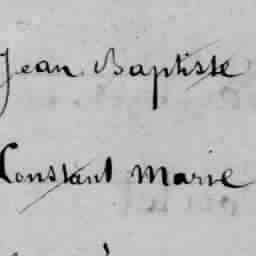 Jean Baptiste
Constant Marie